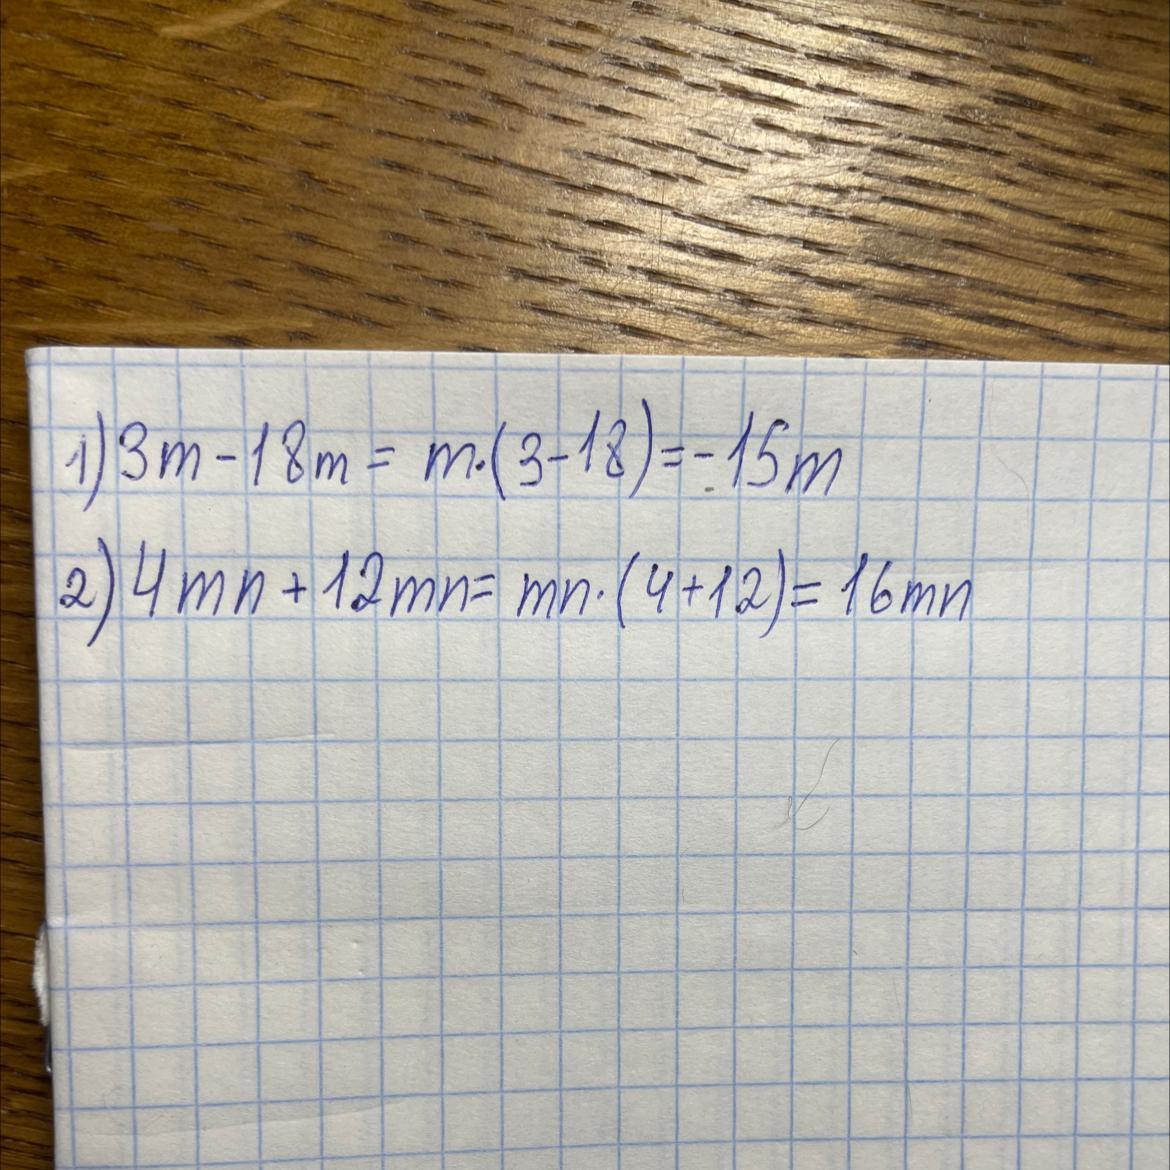 1) 3m - 18m = m·(3-18) = -15m
2) 4mn + 12mn = mn·(4+12) = 16mn